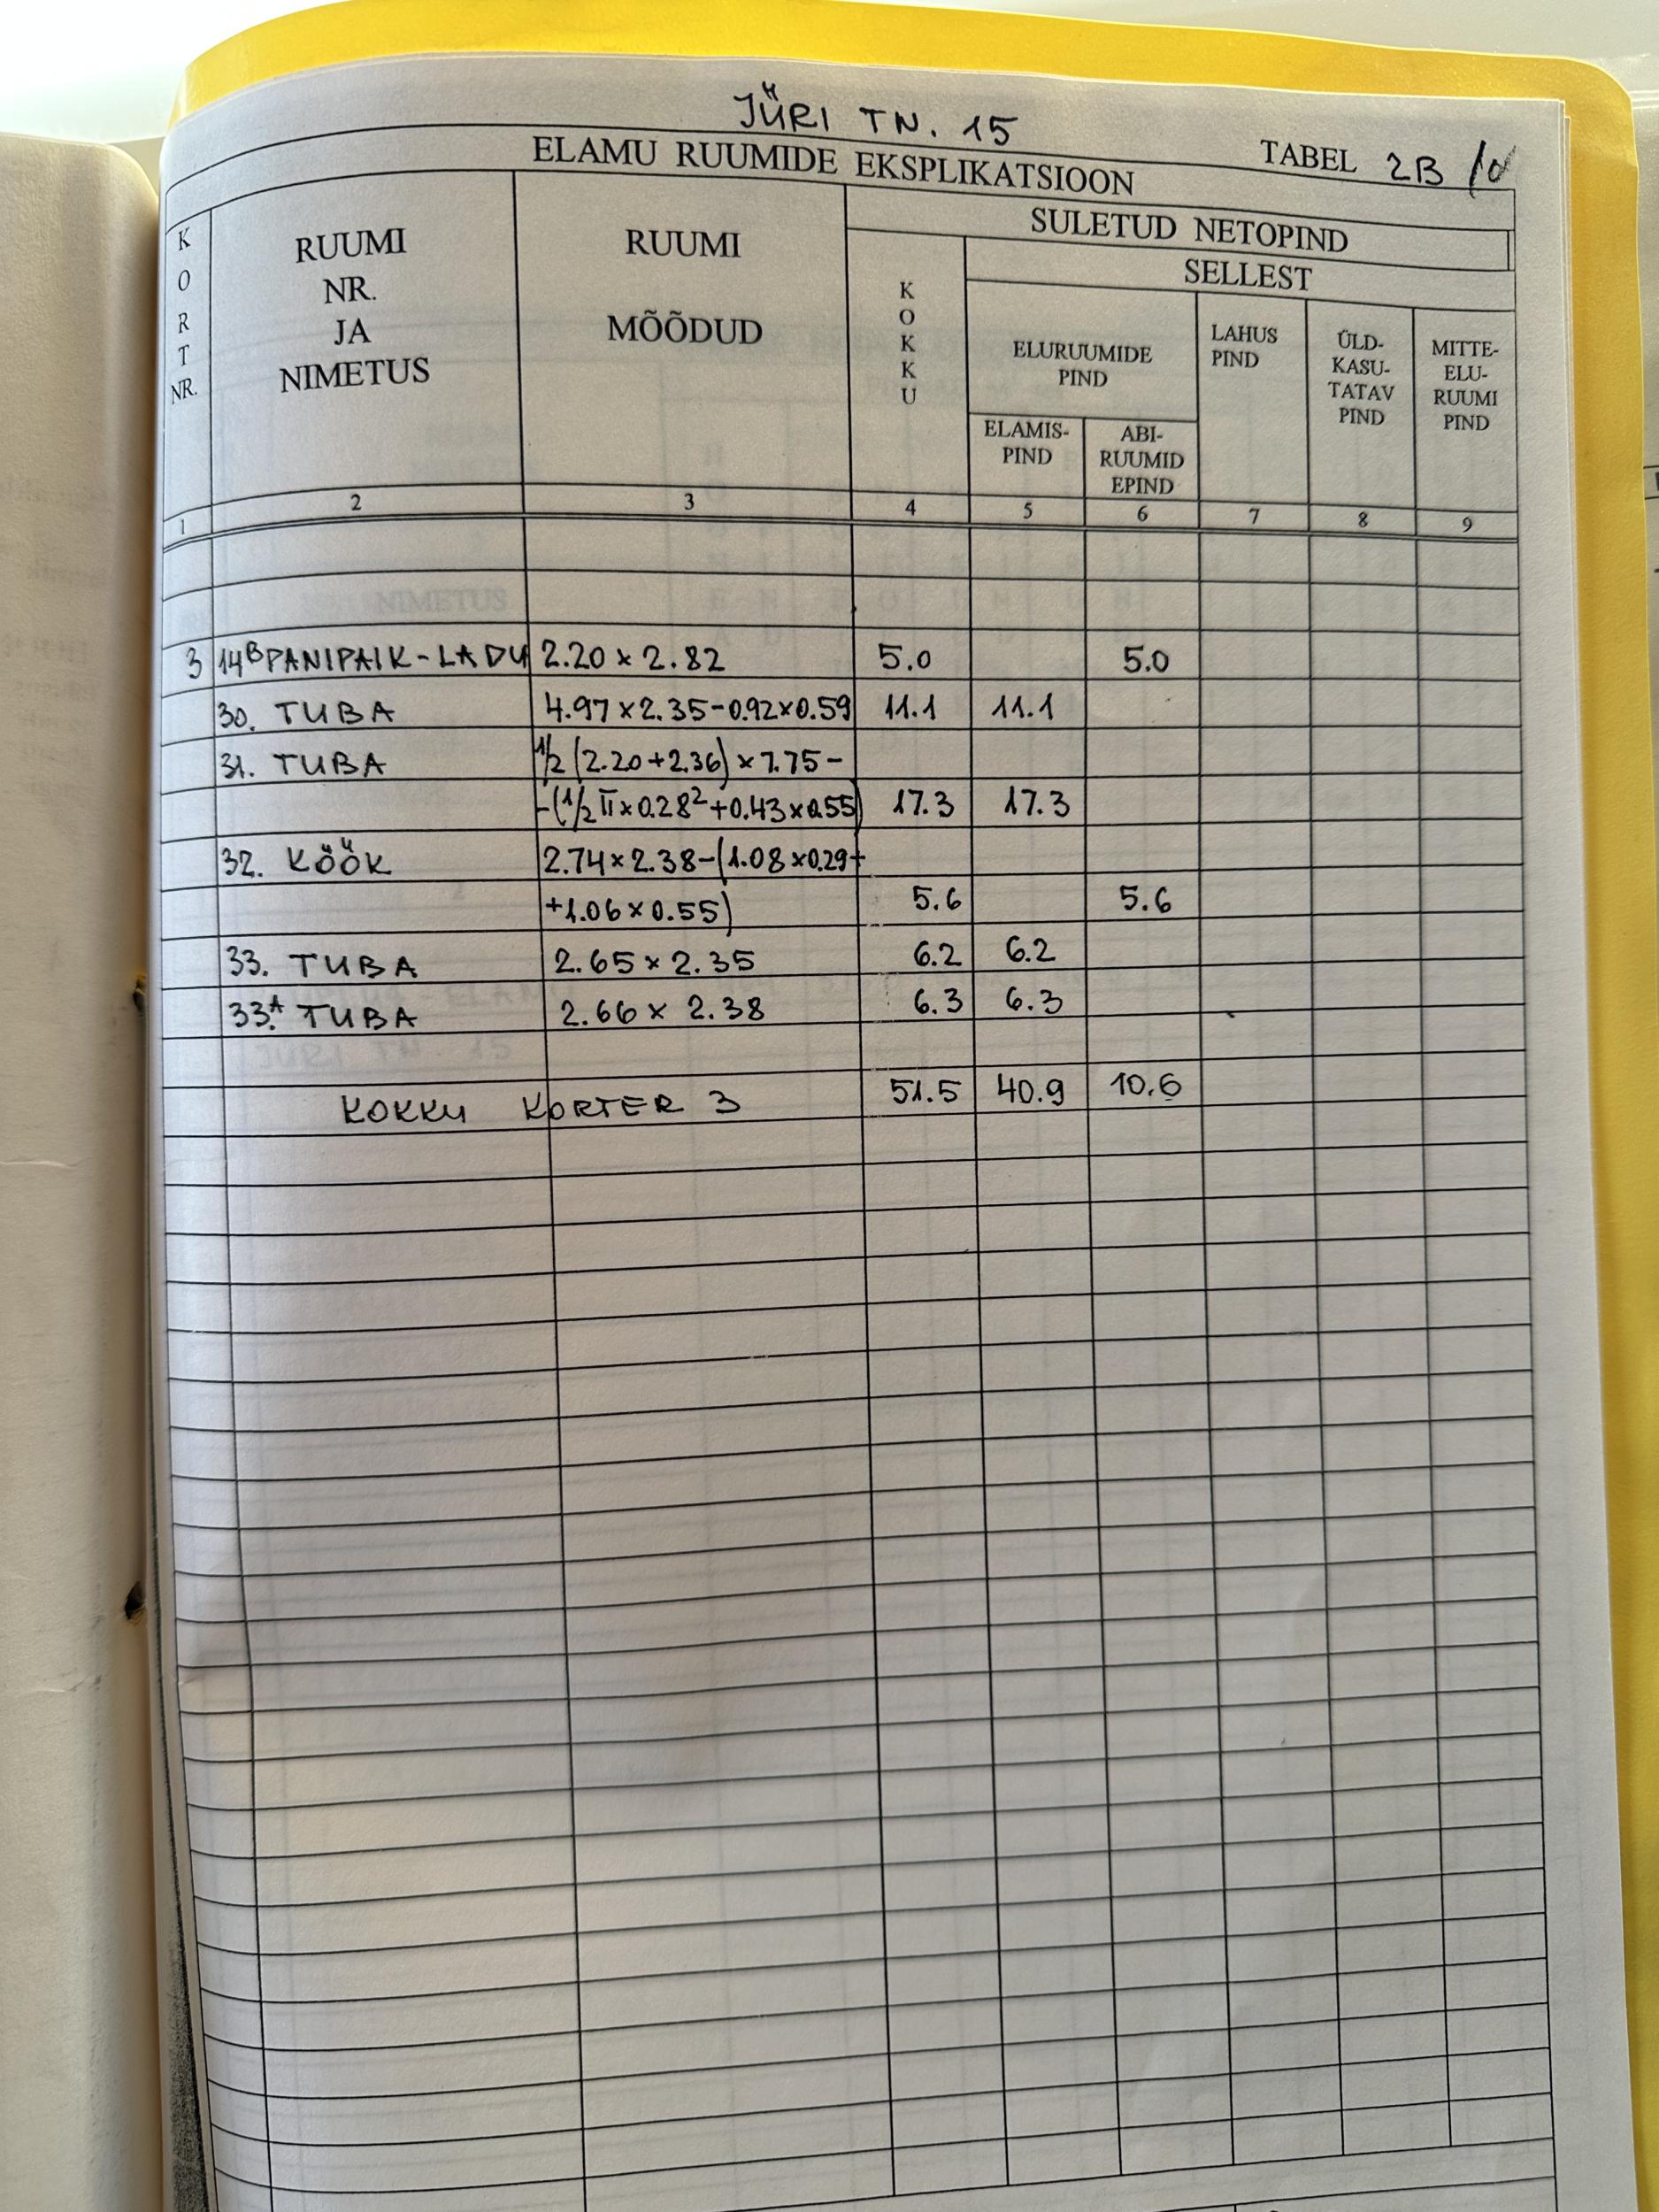 JÜRI TN. 15
TABEL 2B
ELAMU RUUMIDE EKSPLIKATSIOON
KORT NR.
RUUMI NR. JA NIMETUS
RUUMI MÕÕDUD
SULETUD NETOPIND
KOKKU
SELLEST
ELURUUMIDE PIND
ELAMIS-PIND
ABI-RUUMID EPIND
LAHUS PIND
ÜLD-KASU-TATAV PIND
MITTE-ELU-RUUMI PIND
1 2 3 4 5 6 7 8 9
3 14B PANIPAIK-LADU 2.20 × 2.82 5.0 5.0
30. TUBA 4.97 × 2.35 - 0.92 × 0.59 11.1 11.1
31. TUBA 1/2 (2.20 + 2.36) × 7.75 -
-(1/2 π × 0.28² + 0.43 × 0.55) 17.3 17.3
32. KÖÖK 2.74 × 2.38 - (1.08 × 0.29 +
+ 1.06 × 0.55) 5.6 5.6
33. TUBA 2.65 × 2.35 6.2 6.2
33.A TUBA 2.66 × 2.38 6.3 6.3
KOKKU KORTER 3 51.5 40.9 10.6